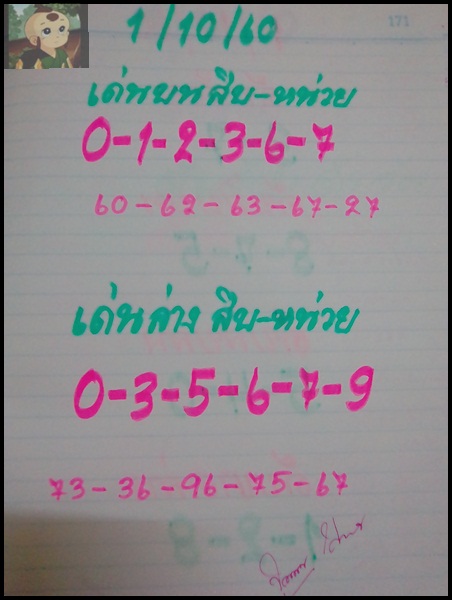 171
1/10/60
เด่นบนสิบ-หน่วย
0-1-2-3-6-7
60-62-63-67-27
เด่นล่าง สิบ-หน่วย
0-3-5-6-7-9
73-36-96-75-67